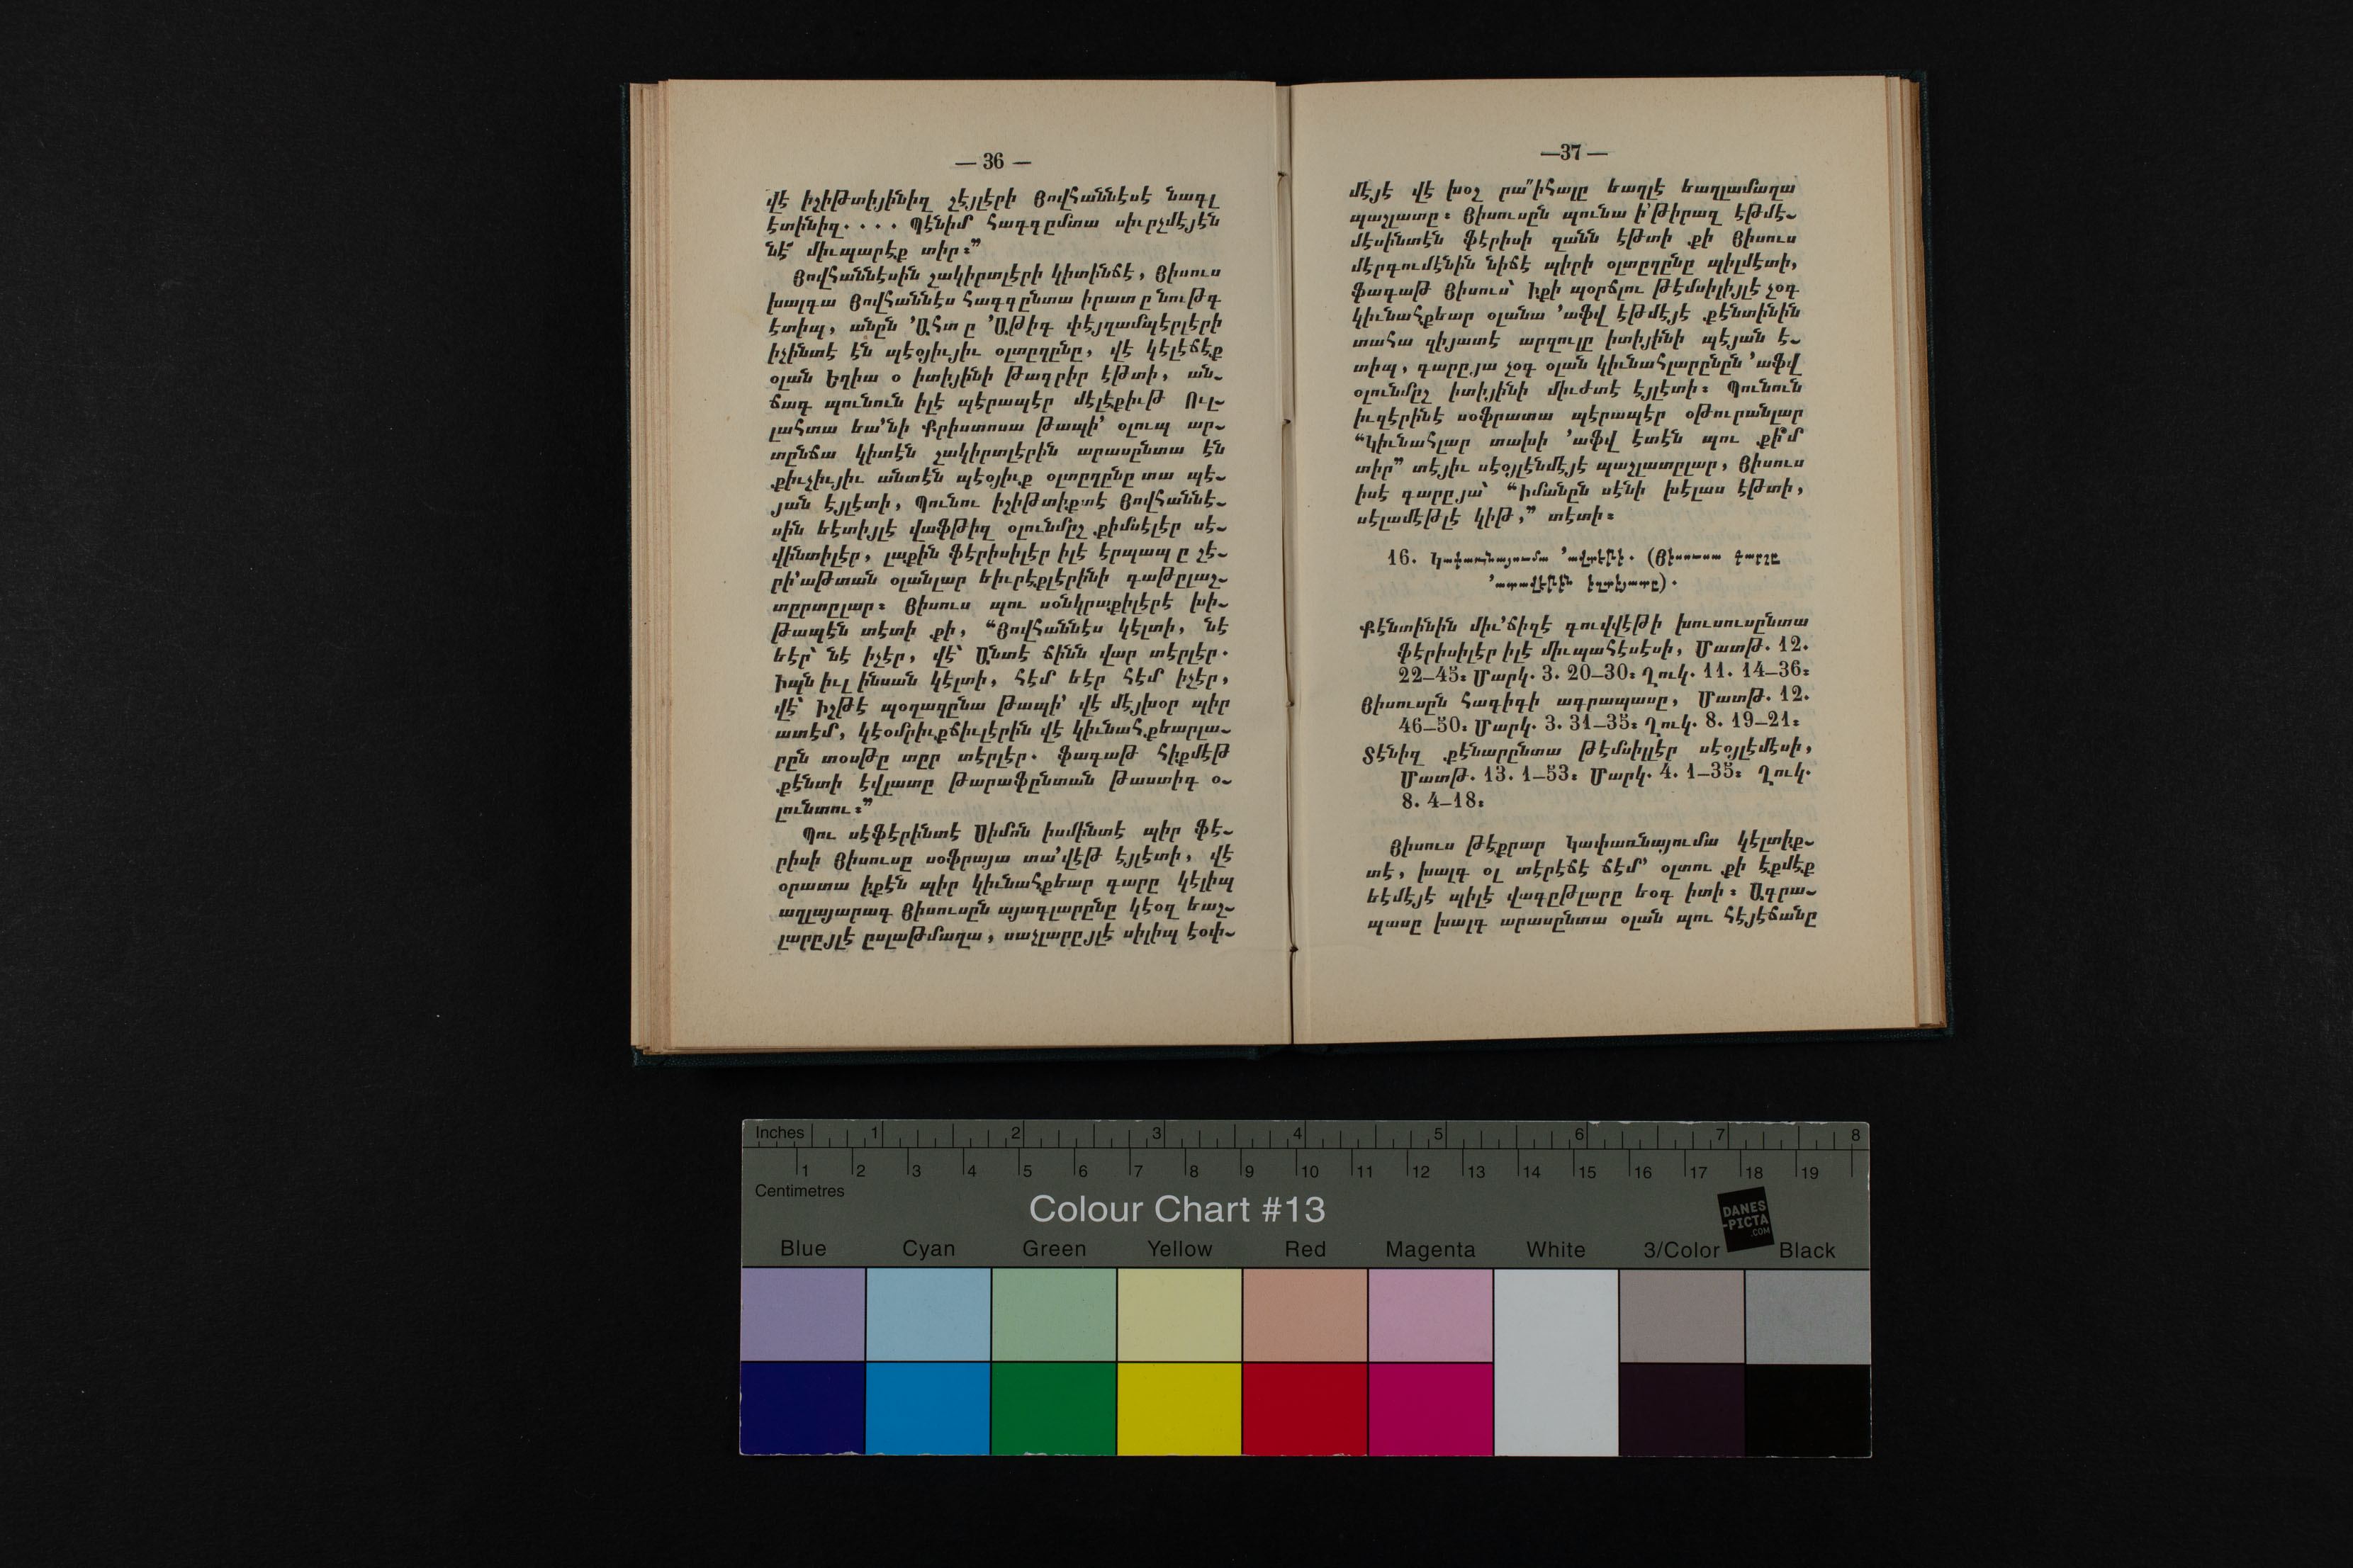 — 36 —
վէ իշիթտիյինիզ շէյլէրի Յովհաննէսէ նագլ
էտինիզ. . . . Պէնիմ հագգըմտա սիւրչմէյէն
նէ՛ միւպարէք տիր։”
Յովհաննէսին շակիրտլէրի կիտինճէ, Յիսուս
խալգա Յովհաննէս հագգընտա իրատը նութգ
էտիպ, անըն ՚Ահտը ՚Աթիգ փէյղամպէրլէրի
իչինտէ էն պէօյիւյիւ օլտըղընը, վէ կէլէճէք
օլան Եղիա օ իտիյինի թաղրիր էթտի, ան֊
ճագ պունուն իլէ պէրապէր մէլէքիւթ Ուլ֊
լահտա եա՚նի Քրիստոսա թապի՚ օլուպ ար֊
տընճա կիտէն շակիրտլէրին արասընտա էն
քիւչիւյիւ անտէն պէօյիւք օլտըղընը տա պէ֊
յան էյլէտի, Պունու իշիթտիքտէ Յովհաննէ֊
սին եէտիյլէ վաֆթիզ օլունմըշ քիմսէլէր սէ֊
վինտիլէր, լաքին ֆէրիսիլէր իլէ էրպապը շէ֊
րի՚աթտան օլանլար եիւրէքլէրինի գաթըլաշ֊
տըրտըլար։ Յիսուս պու սօնկրաքիլէրէ խի֊
թապէն տէտի քի, “Յովհաննէս կէլտի, նէ
եէր՝ նէ իչէր, վէ՝ Անտէ ճինն վար տէրլէր.
Իպն իւլ ինսան կէլտի, հէմ եէր հէմ իչէր,
վէ՝ Իշթէ պօղազընա թապի՚ վէ մէյխօր պիր
ատէմ, կէօմրիւքճիւլէրին վէ կիւնահքեարլա֊
րըն տօսթը տըր տէրլէր. Ֆագաթ հիքմէթ
քէնտի էվլատը թարաֆընտան թաստիգ օ֊
լունտու։”
Պու սէֆէրինտէ Սիմօն իսմինտէ պիր ֆէ֊
րիսի Յիսուսը սօֆրայա տա՚վէթ էյլէտի, վէ
օրատա իքէն պիր կիւնահքեար գարը կէլիպ
աղլայարագ Յիսուսըն այագլարընը կէօզ եաշ֊
լարըյլէ ըսլաթմաղա, սաչլարըյլէ սիլիպ էօփ֊
—37—
մէյէ վէ խօշ րա՛՛իհալը եաղլէ եաղլամաղա
պաշլատը։ Յիսուսըն պունա ի՚թիրազ էթմէ֊
մէսինտէն ֆէրիսի զանն էթտի քի Յիսուս
մէրգումէնին նիճէ պիրի օլտըղընը պիլմէտի,
ֆագաթ Յիսուս՝ Իքի պօրճլու թէմսիլիյլէ չօգ
կիւնահքեար օլանա ՚աֆվ էթմէյէ քէնտինին
տահա զիյատէ արզուլը իտիյինի պէյան է֊
տիպ, գարըյա չօգ օլան կիւնահլարընըն ՚աֆվ
օլունմըշ իտիյինի միւժտէ էյլէտի։ Պունուն
իւզէրինէ սօֆրատա պէրապէր օթուրանլար
“Կիւնահլար տախի ՚աֆվ էտէն պու քի՞մ
տիր” տէյիւ սէօյլէնմէյէ պաշլատըլար, Յիսուս
իսէ գարըյա՝ “Իմանըն սէնի խէլաս էթտի,
սէլամէթլէ կիթ,” տէտի։
16. Կափառնայումա ՚ավտէթի. (Յիսուսա գարշը
՚ատավէթին իզտիատը).
Քէնտինին միւ՚ճիզէ գուվվէթի խուսուսընտա
ֆէրիսիլէր իլէ միւպահէսէսի, Մատթ. 12.
22–45։ Մարկ. 3. 20–30։ Ղուկ. 11. 14–36։
Յիսուսըն հագիգի ագրապասը, Մատթ. 12.
46–50։ Մարկ. 3. 31–35։ Ղուկ. 8. 19–21։
Տէնիզ քէնարընտա թէմսիլլէր սէօյլէմէսի,
Մատթ. 13. 1–53։ Մարկ. 4. 1–35։ Ղուկ.
8. 4–18։
Յիսուս թէքրար Կափառնայումա կէլտիք֊
տէ, խալգ օլ տէրէճէ ճէմ՚ օլտու քի էքմէք
եէմէյէ պիլէ վագըթլարը եօգ իտի։ Ագրա֊
պասը խալգ արասընտա օլան պու հէյէճանը
Inches 1 2 3 4 5 6 7 8
1 2 3 4 5 6 7 8 9 10 11 12 13 14 15 16 17 18 19
Centimetres
Colour Chart #13
DANES
-PICTA
.COM
Blue Cyan Green Yellow Red Magenta White 3/Color Black